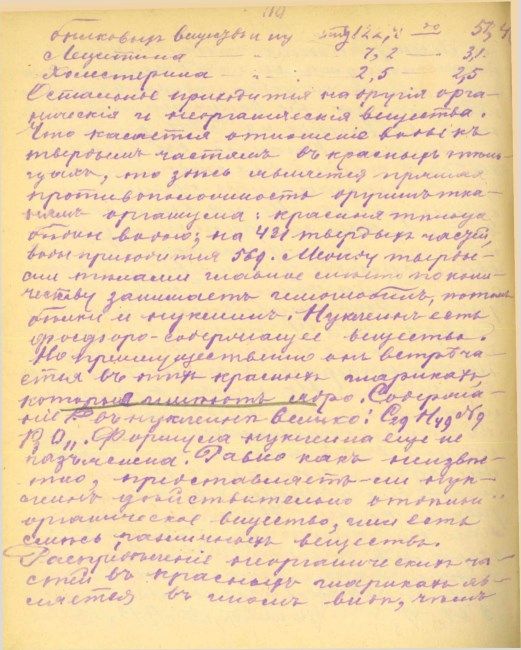 бѣлковыхъ веществъ и пр 122,1 — 53,4
Лецитина — — 7,2 — 3,1
Холестерина — — 2,5 — 2,5
Остальное приходится на другія орга-
ническія и неорганическія вещества.
Что касается отношенія воды къ
твердымъ частямъ въ красныхъ тѣль-
цахъ, то здѣсь является прямая
противоположность другимъ тка-
нямъ организма: красныя тѣльца
бѣдны водою; на 431 твердыхъ частей,
воды приходится 569. Между тверды-
ми тѣлами главное мѣсто по коли-
честву занимаетъ гемоглобинъ, потомъ
бѣлки и нуклеинъ. Нуклеинъ есть
фосфоро-содержащее вещество.
Но преимущественно онъ встрѣча-
ется въ тѣхъ красныхъ шарикахъ,
которые имѣютъ ядро. Содержа-
ніе P въ нуклеинѣ велико: C29 H49 N9
P3 O22. Формула нуклеина еще не
разъяснена. Равно какъ неизвѣст-
но, представляетъ-ли нук-
леинъ дѣйствительно отдѣльное
органическое вещество, или есть
смѣсь различныхъ веществъ.
Распредѣленіе неорганическихъ ча-
стей въ красныхъ шарикахъ яв-
ляется въ иномъ видѣ, чѣмъ